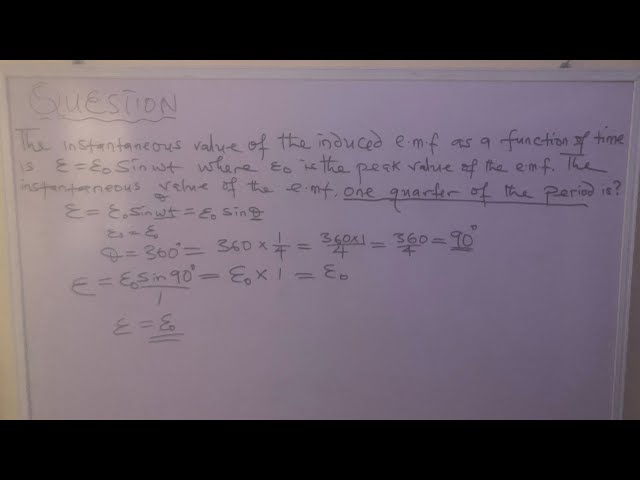 QUESTION
The instantaneous value of the induced e.m.f as a function of time
is ε = ε₀ Sin wt where ε₀ is the peak value of the e.m.f. The
instantaneous value of the e.m.f. one quarter of the period is?
ε = ε₀ sin wt = ε₀ sin θ
ε₀ = ε₀
θ = 360° = 360 × 1/4 = 360×1/4 = 360/4 = 90°
ε = ε₀ sin 90° = ε₀ × 1 = ε₀
1
ε = ε₀